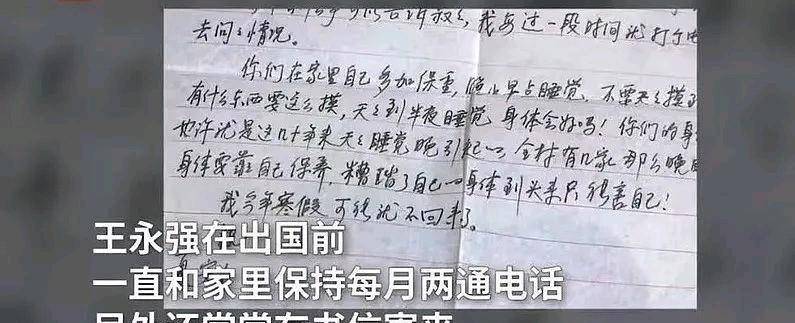 我每过一段时间就打个电
去问问情况。
你们在家里自己多加保重,晚上早点睡觉,不要天天摸到
有什么东西要这么摸,天天到半夜睡觉,身体会好吗!你们的身
也许就是这几十年来天天睡觉晚引起的,全村有几家那么晚睡
身体要靠自己保养,糟蹋了自己的身体到头来只能害自己!
我今年寒假可能就不回来了。
王永强在出国前
一直和家里保持每月两通电话
另外还常常有书信寄来